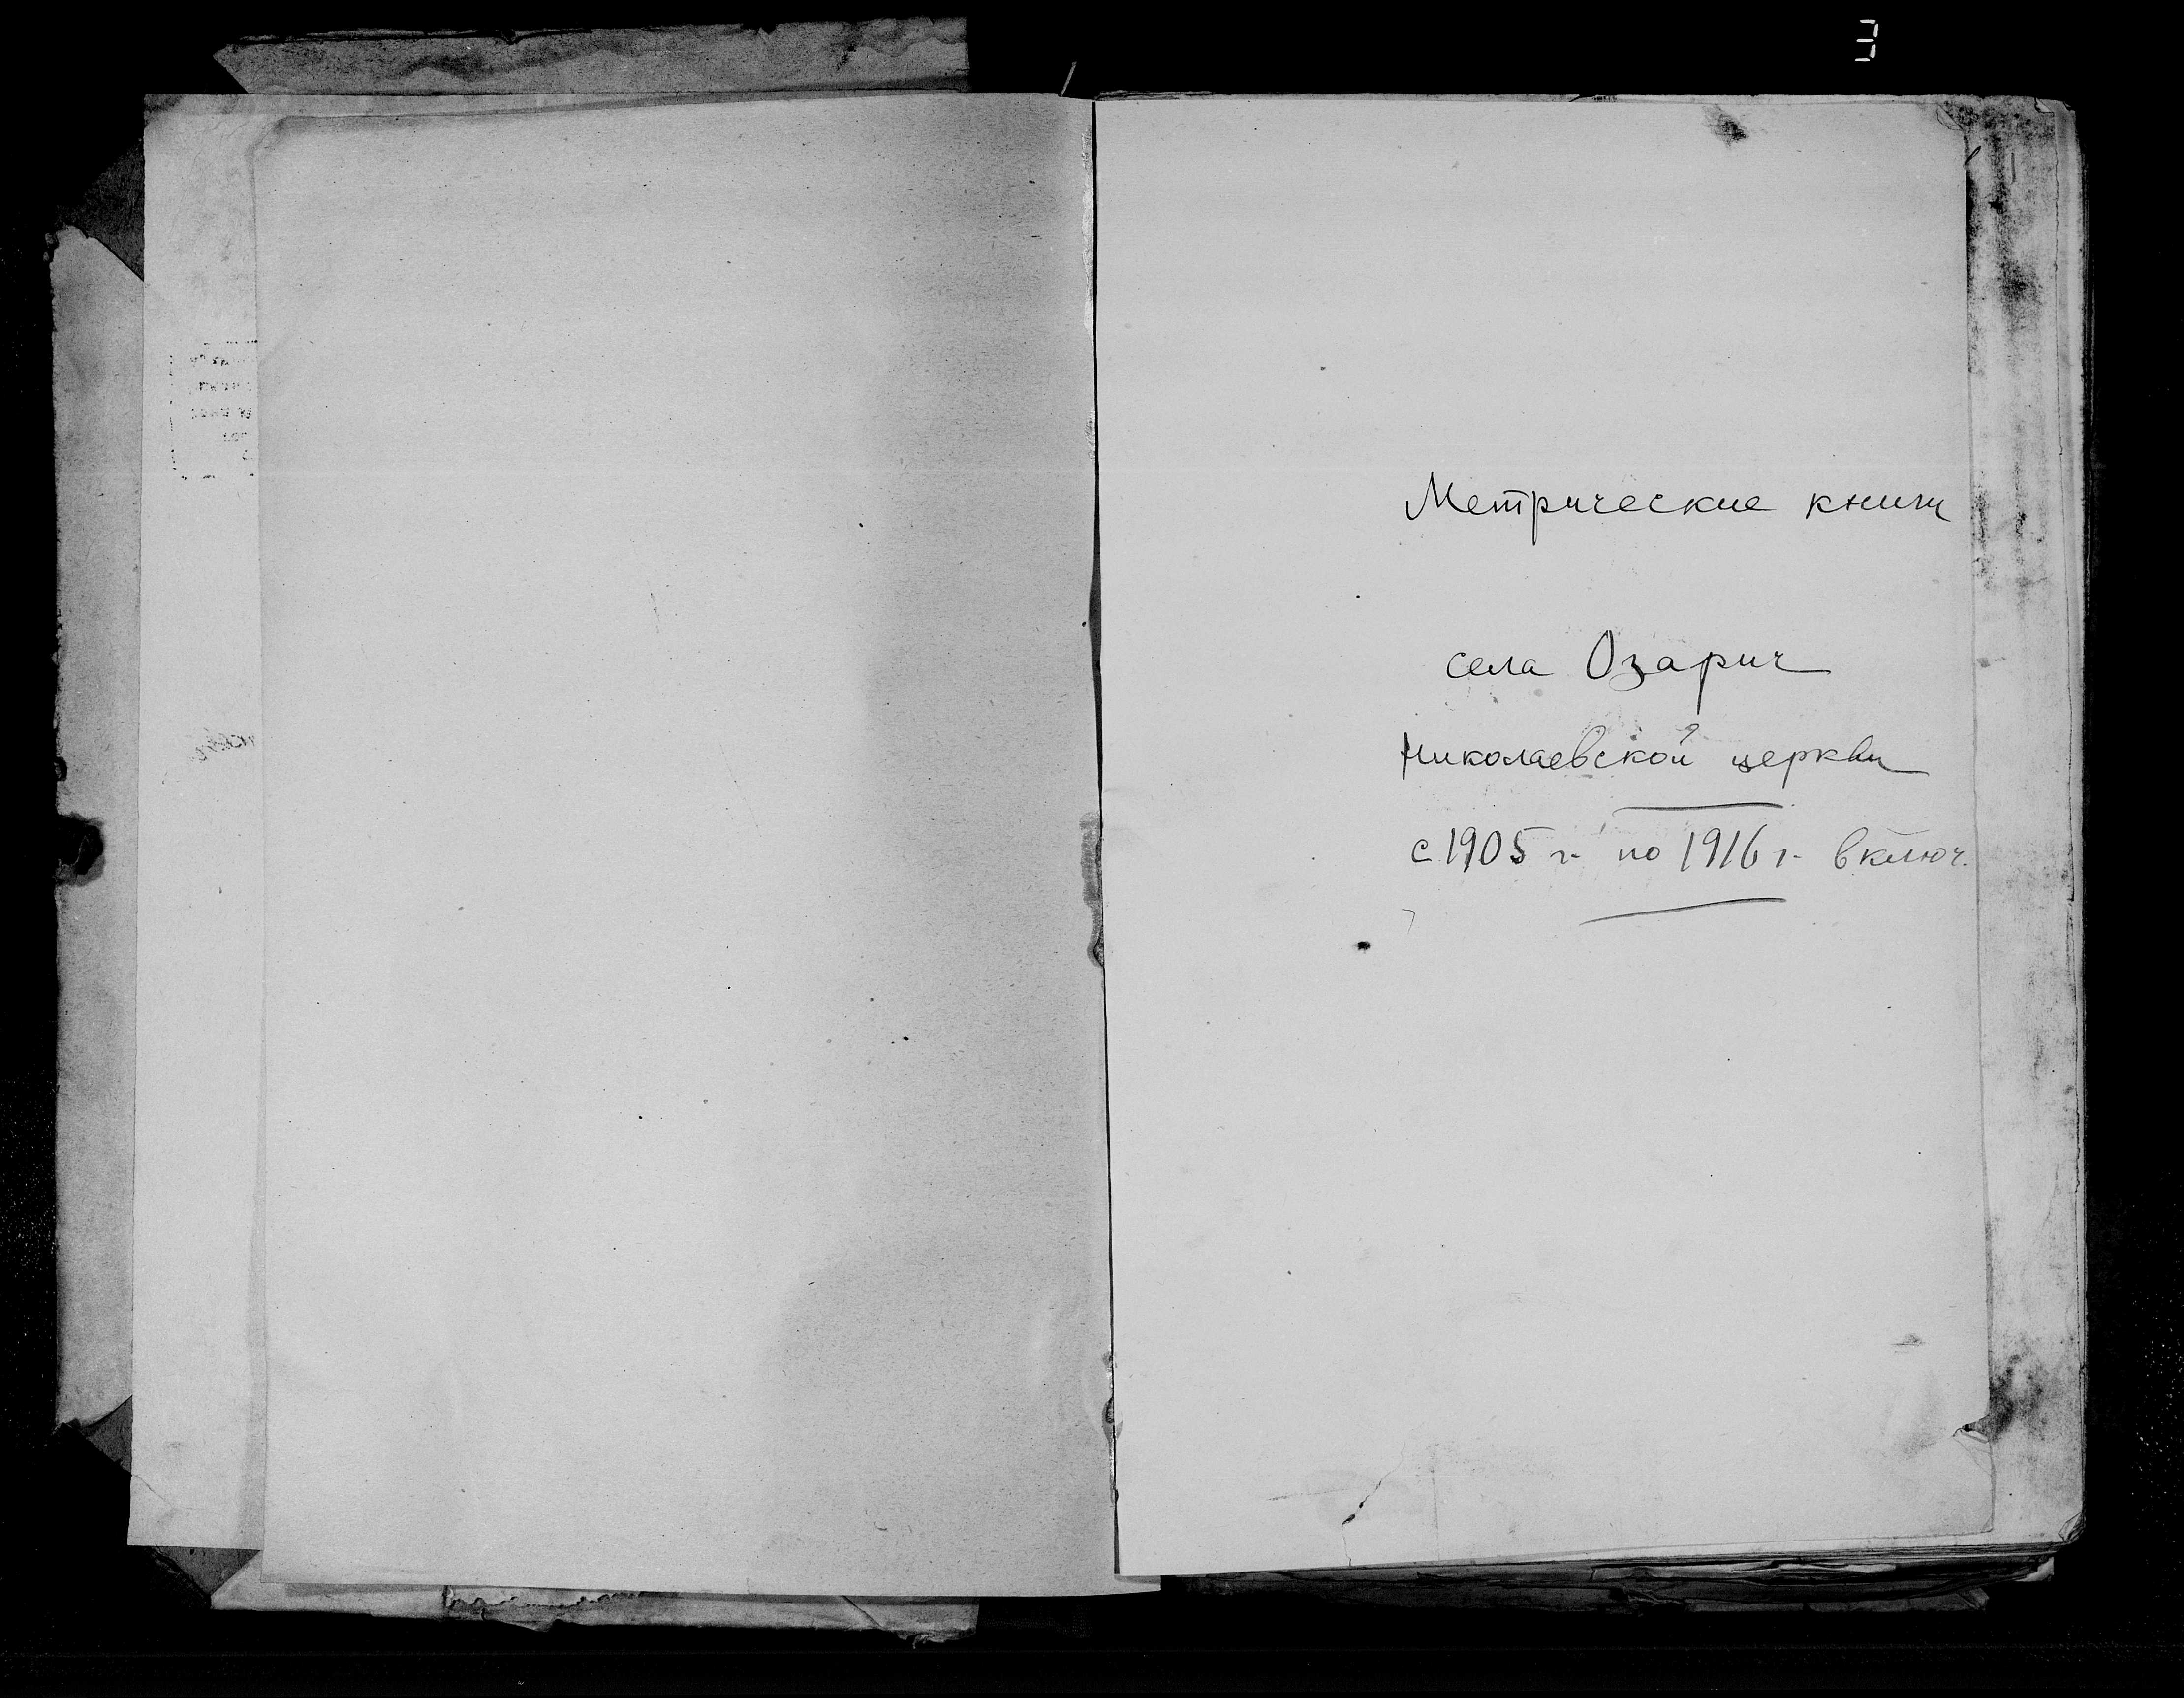 3
Метрические книги
села Озарич
Николаевской церкви
с 1905 г. по 1916 г. включ.